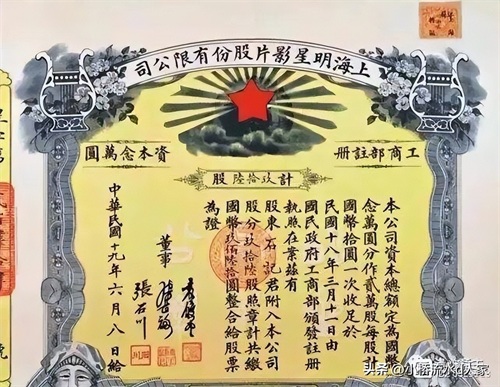 上海明星影片股份有限公司
工商部註冊
資本念萬圓
計玖拾陸股
本公司資本總額定為國幣
念萬圓分作貳萬股每股計
國幣拾圓一次收足於
民國十八年三月十一日由
國民政府工商部頒發註冊
執照在案茲有
股東石記君附入本公司
股分玖拾陸股照章計共繳
國幣玖佰陸拾圓整合給股票
為證
董事
張石川
中華民國十九年六月八日給
头条